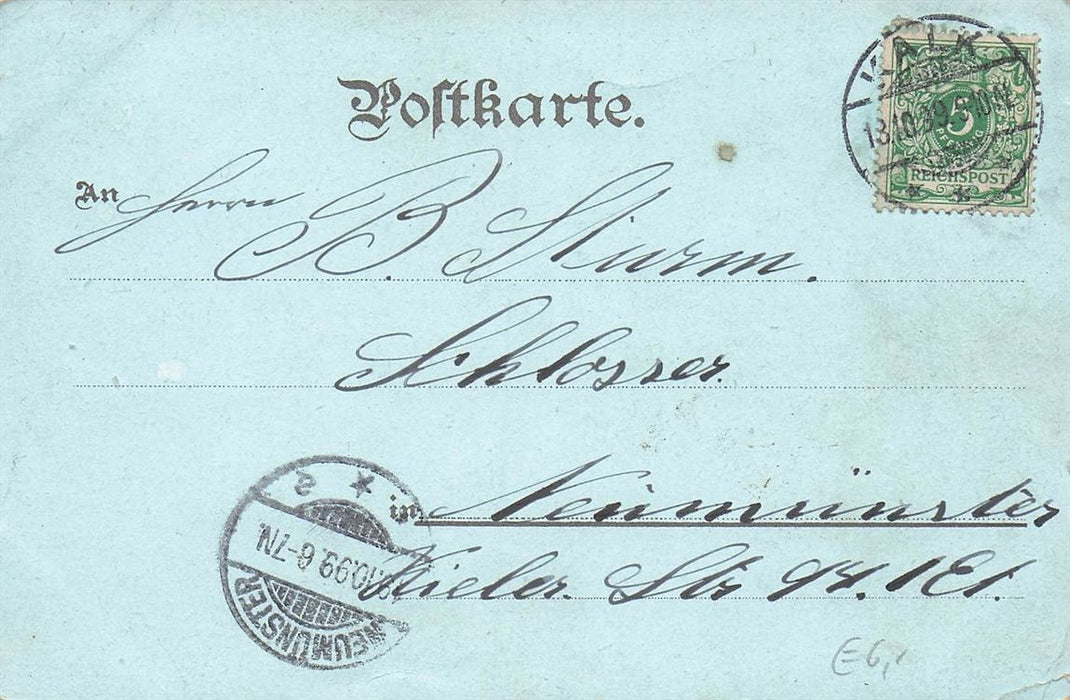 Postkarte.
KALK
18.10.99.8-10N.
5
PFENNIG
REICHSPOST
An Herrn B. Sturm.
Schlosser.
in Neumünster
Kieler. Str 94. I Et.
* 2
10.99.6-7N.
NEUMÜNSTER
E6,-